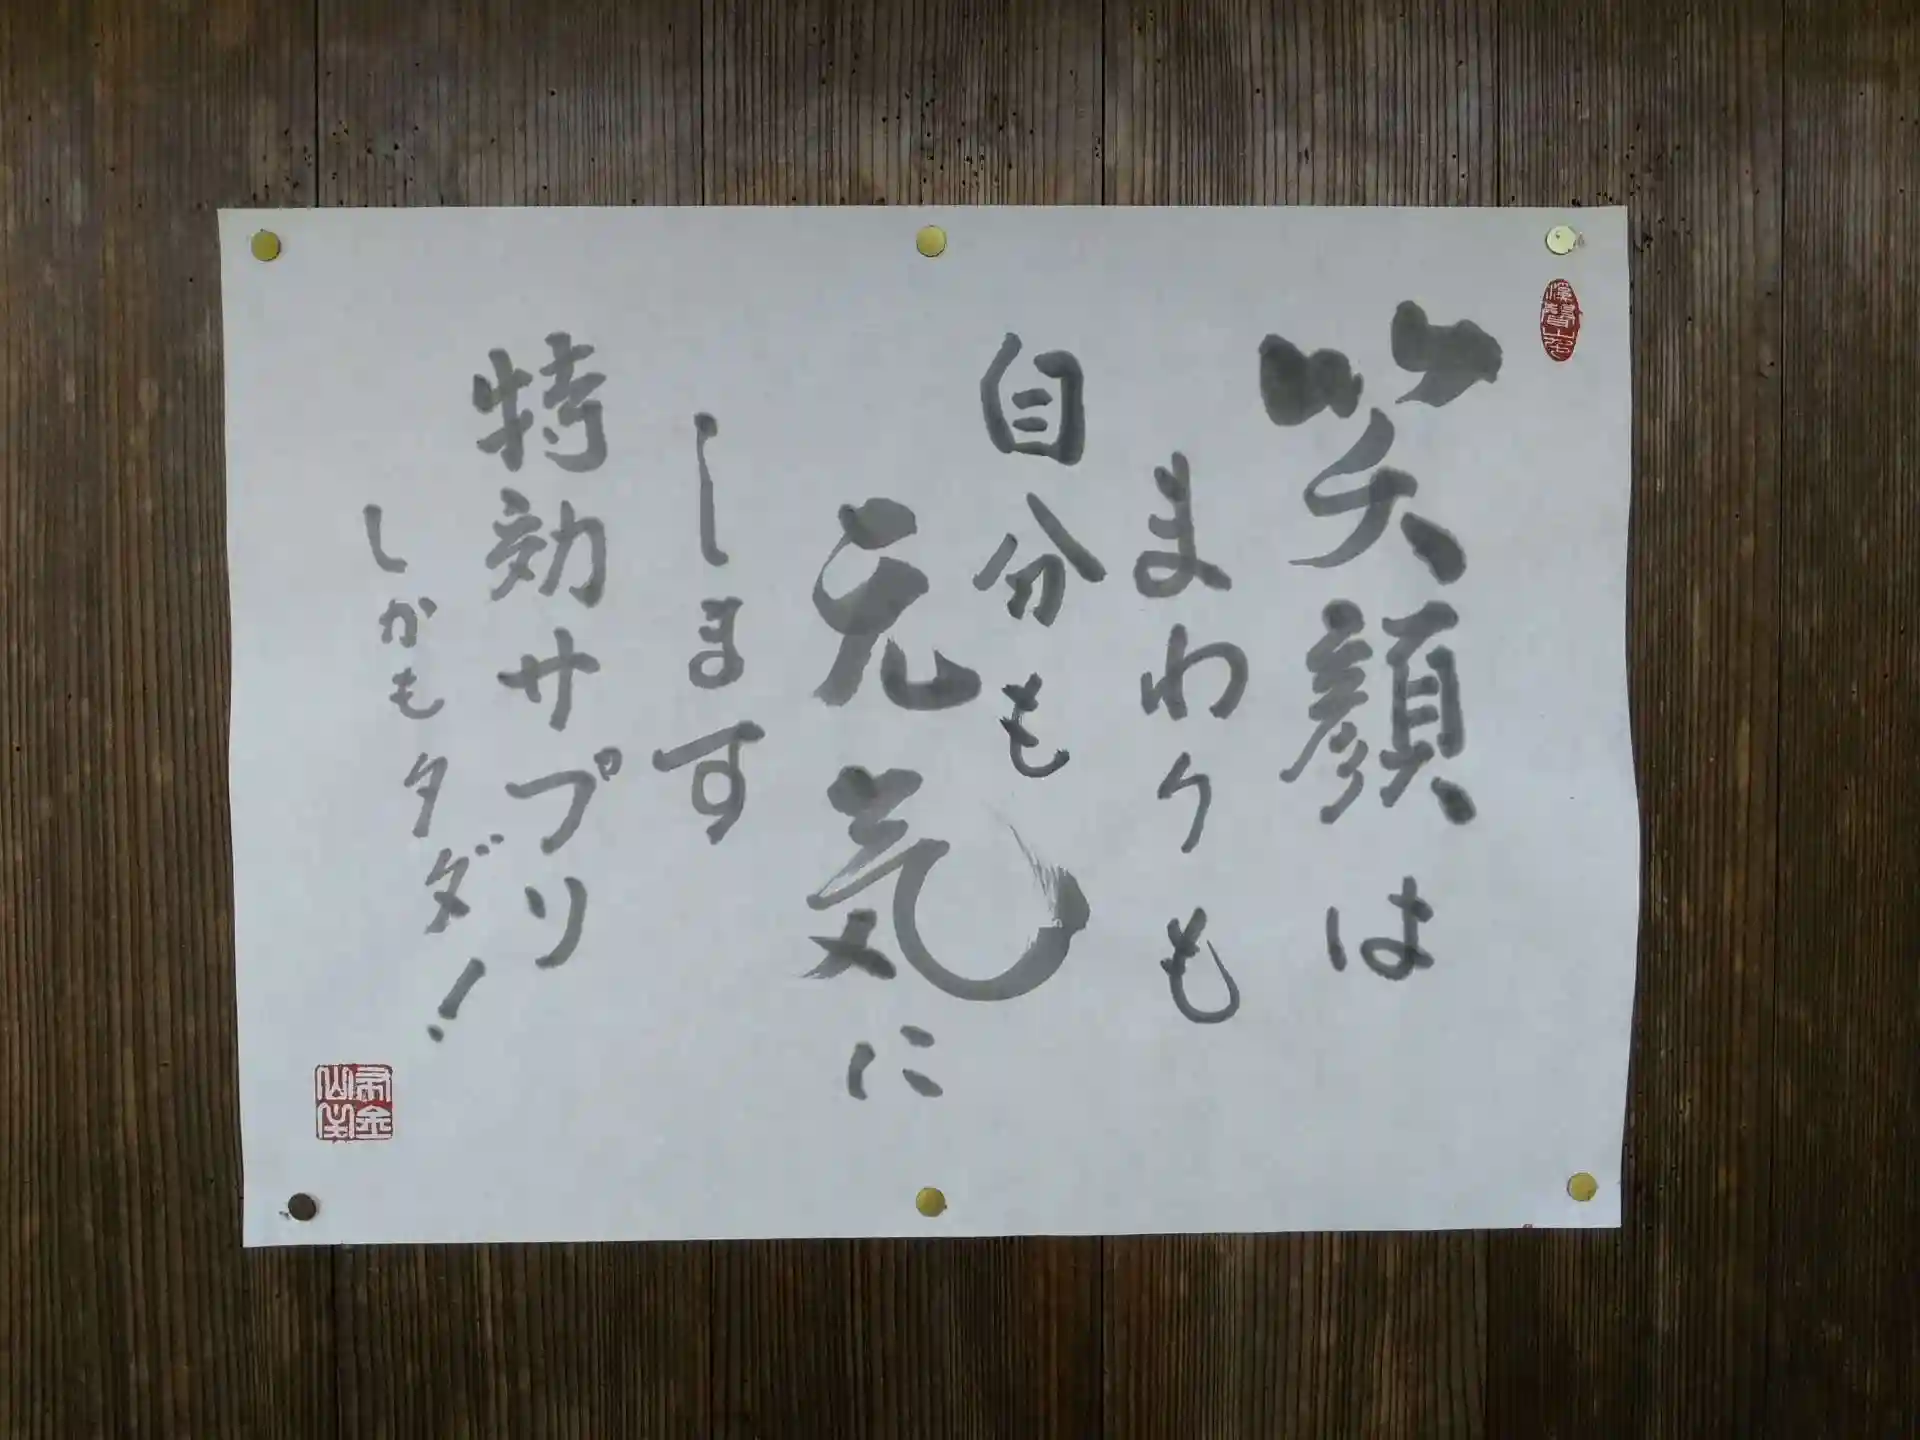 笑顔は
まわりも
自分も
元気に
します
特効サプリ
しかもタダ!